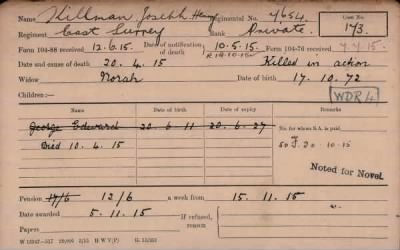 Name Hillman Joseph Henry Regimental No. 4654 Case No.
Regiment East Surrey Rank Private 173
Form 104-88 received 12.6.15. Date of notification of death 10.5.15. Form 104-76 received 7.7.15.
R 19.10.15
Date and cause of death 20. 4. 15 Killed in action
Widow Norah Date of birth 17. 10. 72
Children:— WDR 4
Date of birth Date of expiry Remarks
George Edward 20. 6. 11 20. 6. 27 No. for whom S.A. is paid.
Died 10. 4. 15 20. 10. 15
Noted for Novel
Pension 17/6 12/6 a week from 15. 11. 15
Date awarded 5. 11. 15 If refused, reason